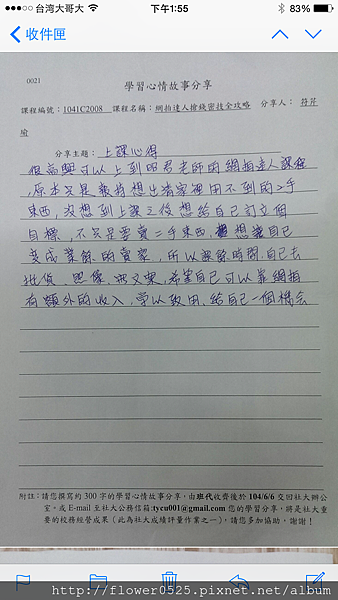 台湾大哥大
下午1:55
83%
收件匣
0021
學習心情故事分享
課程編號：1041C2008 課程名稱：網拍達人搶錢密技全攻略 分享人：符芷
瑜
分享主題：上課心得
很高興可以上到明君老師的網拍達人課程
，原本只是報持想出清家裡用不到的2手
東西，沒想到上課之後想給自己訂立個
目標，不只是要賣二手東西，想讓自己
變成業餘的賣家，所以課餘時間，自己去
批貨、照像、，希望自己可以靠網拍
有額外的收入，學以致用，給自己一個機會
附註：請您撰寫約 300 字的學習心情故事分享，由班代收齊後於 104/6/6 交回社大辦公
室。或 E-mail 至社大公務信箱:tycu001@gmail.com 您的學習分享，將是社大重
要的校務經營成果（此為社大成績評量作業之一），請您多加協助。謝謝！
http://flower0525.pixnet.net/album